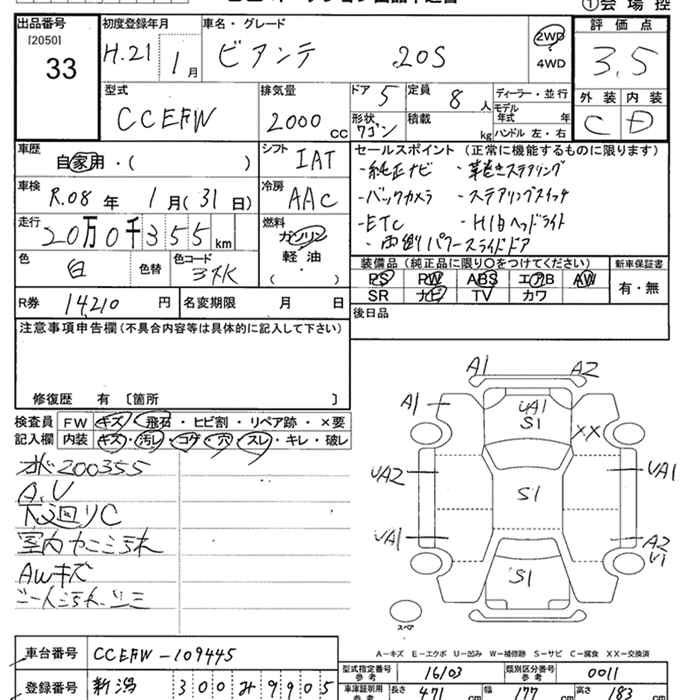 ①会場控
出品番号 初度登録年月 車名・グレード 評価点
[2050]
33 H.21年 1月 ビアンテ 20S 2WD 4WD 3.5
型式 排気量 ドア 5 定員 8人 ディーラー・並行 外装 内装
CCEFW 2000cc 形状 ワゴン 積載 kg モデル年式 年 ハンドル 左・右 C D
車歴 自家用・( ) シフト IAT セールスポイント (正常に機能するものに限ります)
・純正ナビ ・革巻きステアリング
車検 R.08年 1月(31日) 冷房 AAC ・バックカメラ ・ステアリングスイッチ
走行 20万0千355km 燃料 ガソリン 軽油 ( ) ・ETC ・HIDヘッドライト
・両側パワースライドドア
色 白 色替 色コード
装備品 (純正品に限り〇をつけてください) 新車保証書
PS PW ABS エアB AW 有・無
SR ナビ TV カワ
R券 14,210円 名変期限 月 日 後日品
注意事項申告欄 (不具合内容等は具体的に記入して下さい)
修復歴 有 [箇所 ]
検査員記入欄 FW キズ・飛石・ヒビ割・リペア跡・×要
内装 キズ・汚し・コゲ・穴・スレ・キレ・破レ
200355
A.U
下廻りC
室内
AWキズ
A1 A2
A1 UA1 S1 XX
UA2 S1 UA1
UA1 S1 A2 U1
スペア
A-キズ E-エクボ U-凹み W-補修跡 S-サビ C-腐食 XX-交換済
車台番号 CCEFW-109445
登録番号 新潟 300 み 9905
型式指定番号 参考 16103 類別区分番号 参考 0011
車庫証明用 参考 長さ 471cm 幅 177cm 高さ 183cm